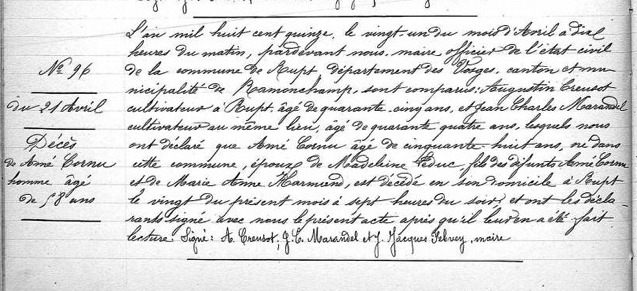 L'an mil huit cent quinze, le vingt-un du mois d'Avril à dix
heures du matin, pardevant nous, maire officier de l'état civil
de la commune de Rupt, département des Vosges, canton et mu-
nicipalité de Ramonchamp, sont comparus, Augustin Creusot
cultivateur à Rupt, âgé de quarante cinq ans, et Jean Charles Marandel
cultivateur au même lieu, âgé de quarante quatre ans, lesquels nous
ont déclaré que Amé Cornu âgé de cinquante-huit ans, né dans
cette commune, époux de Madeleine Leduc, fils des défunts Amé Cornu
et de Marie Anne Harmand, est décédé en son domicile à Rupt
le vingt du présent mois à sept heures du soir, et ont les décla-
rants signé avec nous le présent acte après qu'il leur en a été fait
lecture. Signé: A. Creusot, J. C. Marandel et J. Jacques Pelvey, maire
N° 96
du 21 Avril
Décès
de Amé Cornu
homme âgé
de 58 ans